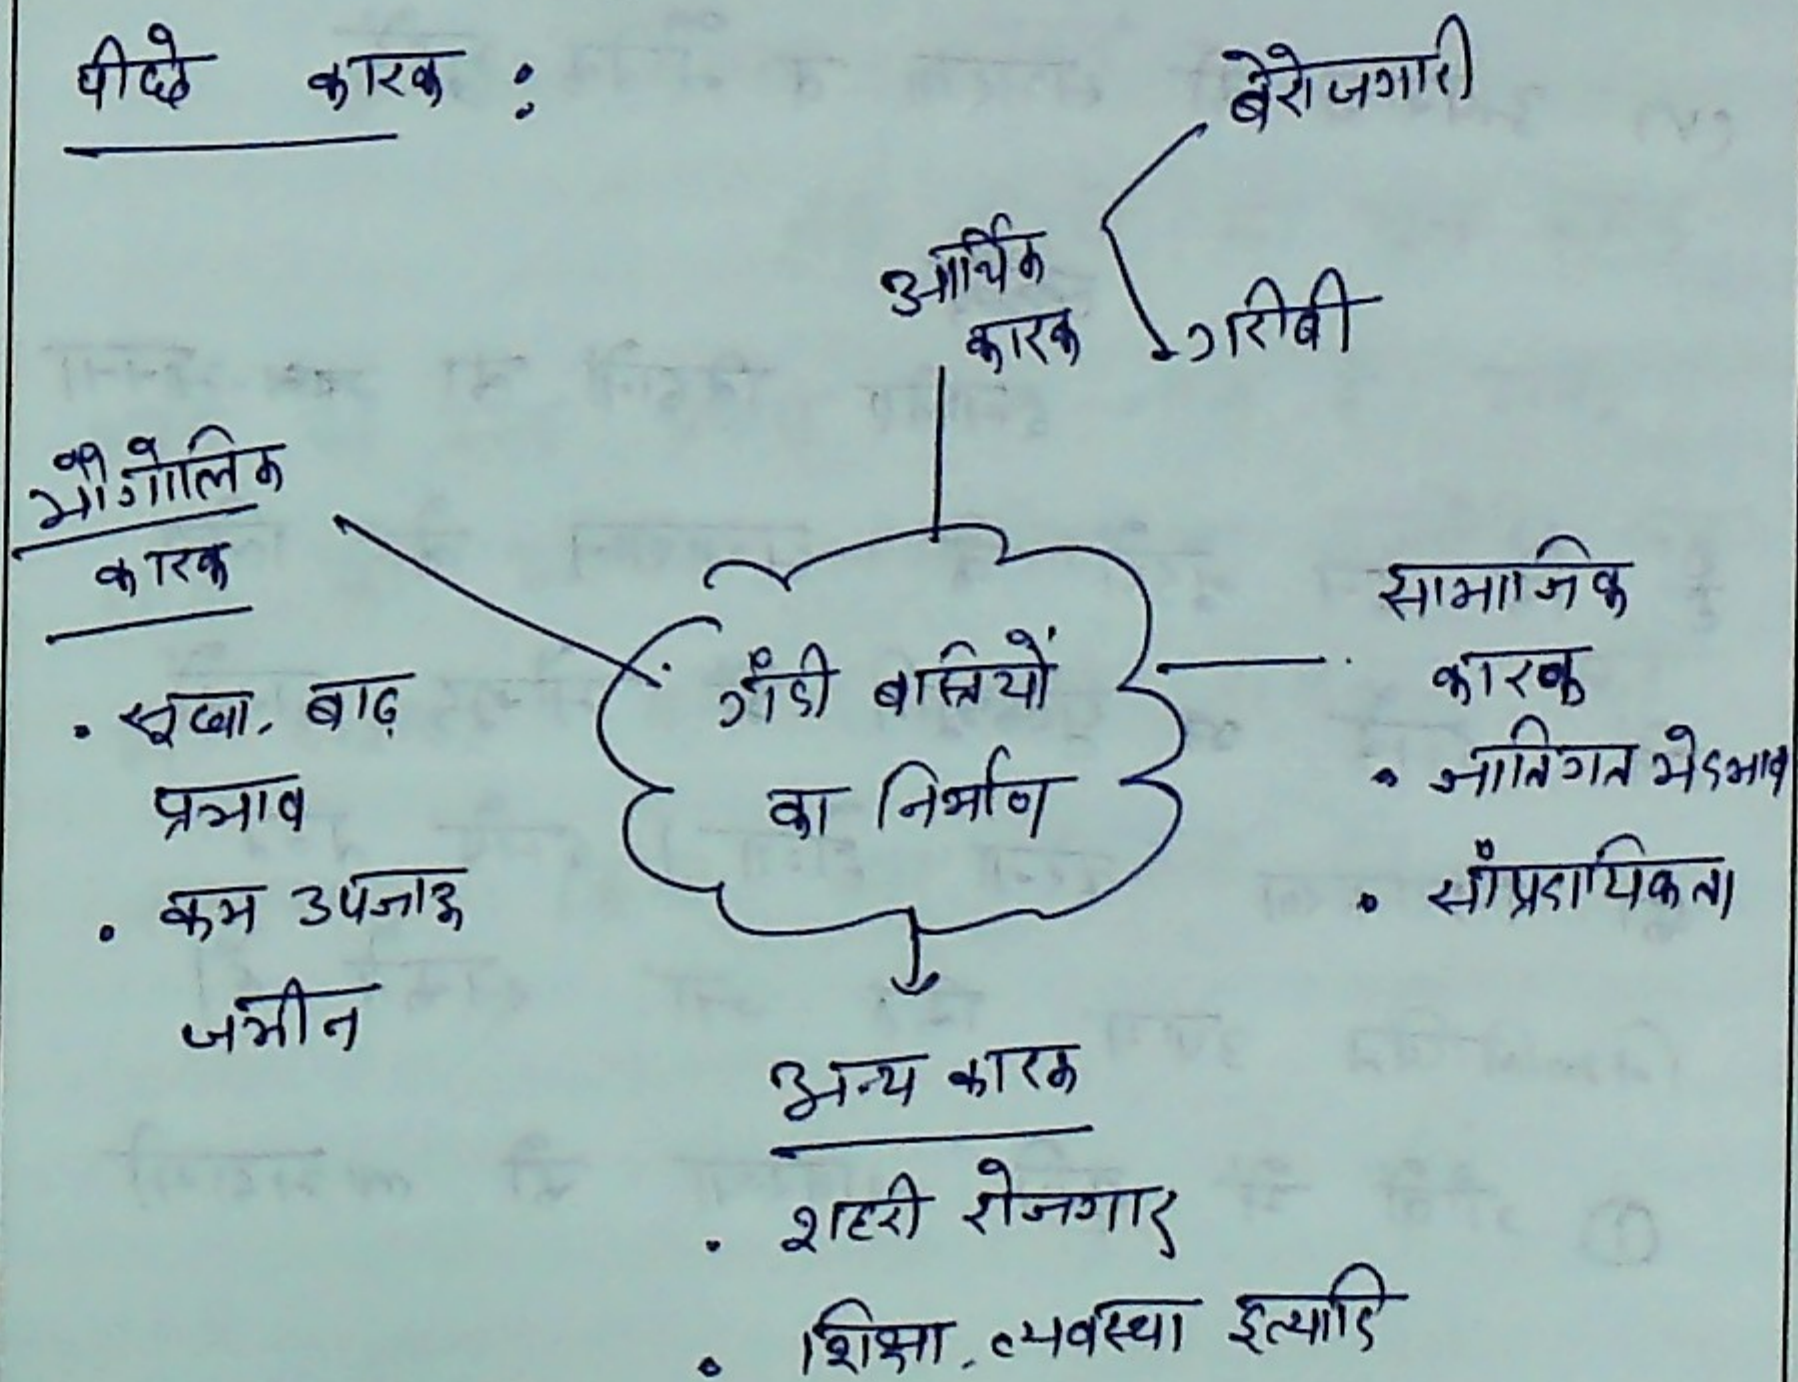 पीछे कारक :
बेरोजगारी
आर्थिक
कारक
गरीबी
भौगोलिक
कारक
• सूखा, बाढ़
प्रभाव
• कम उपजाऊ
जमीन
गंदी बस्तियों
का निर्माण
सामाजिक
कारक
• जातिगत भेदभाव
• सांप्रदायिकता
अन्य कारक
• शहरी रोजगार
• शिक्षा, व्यवस्था इत्यादि